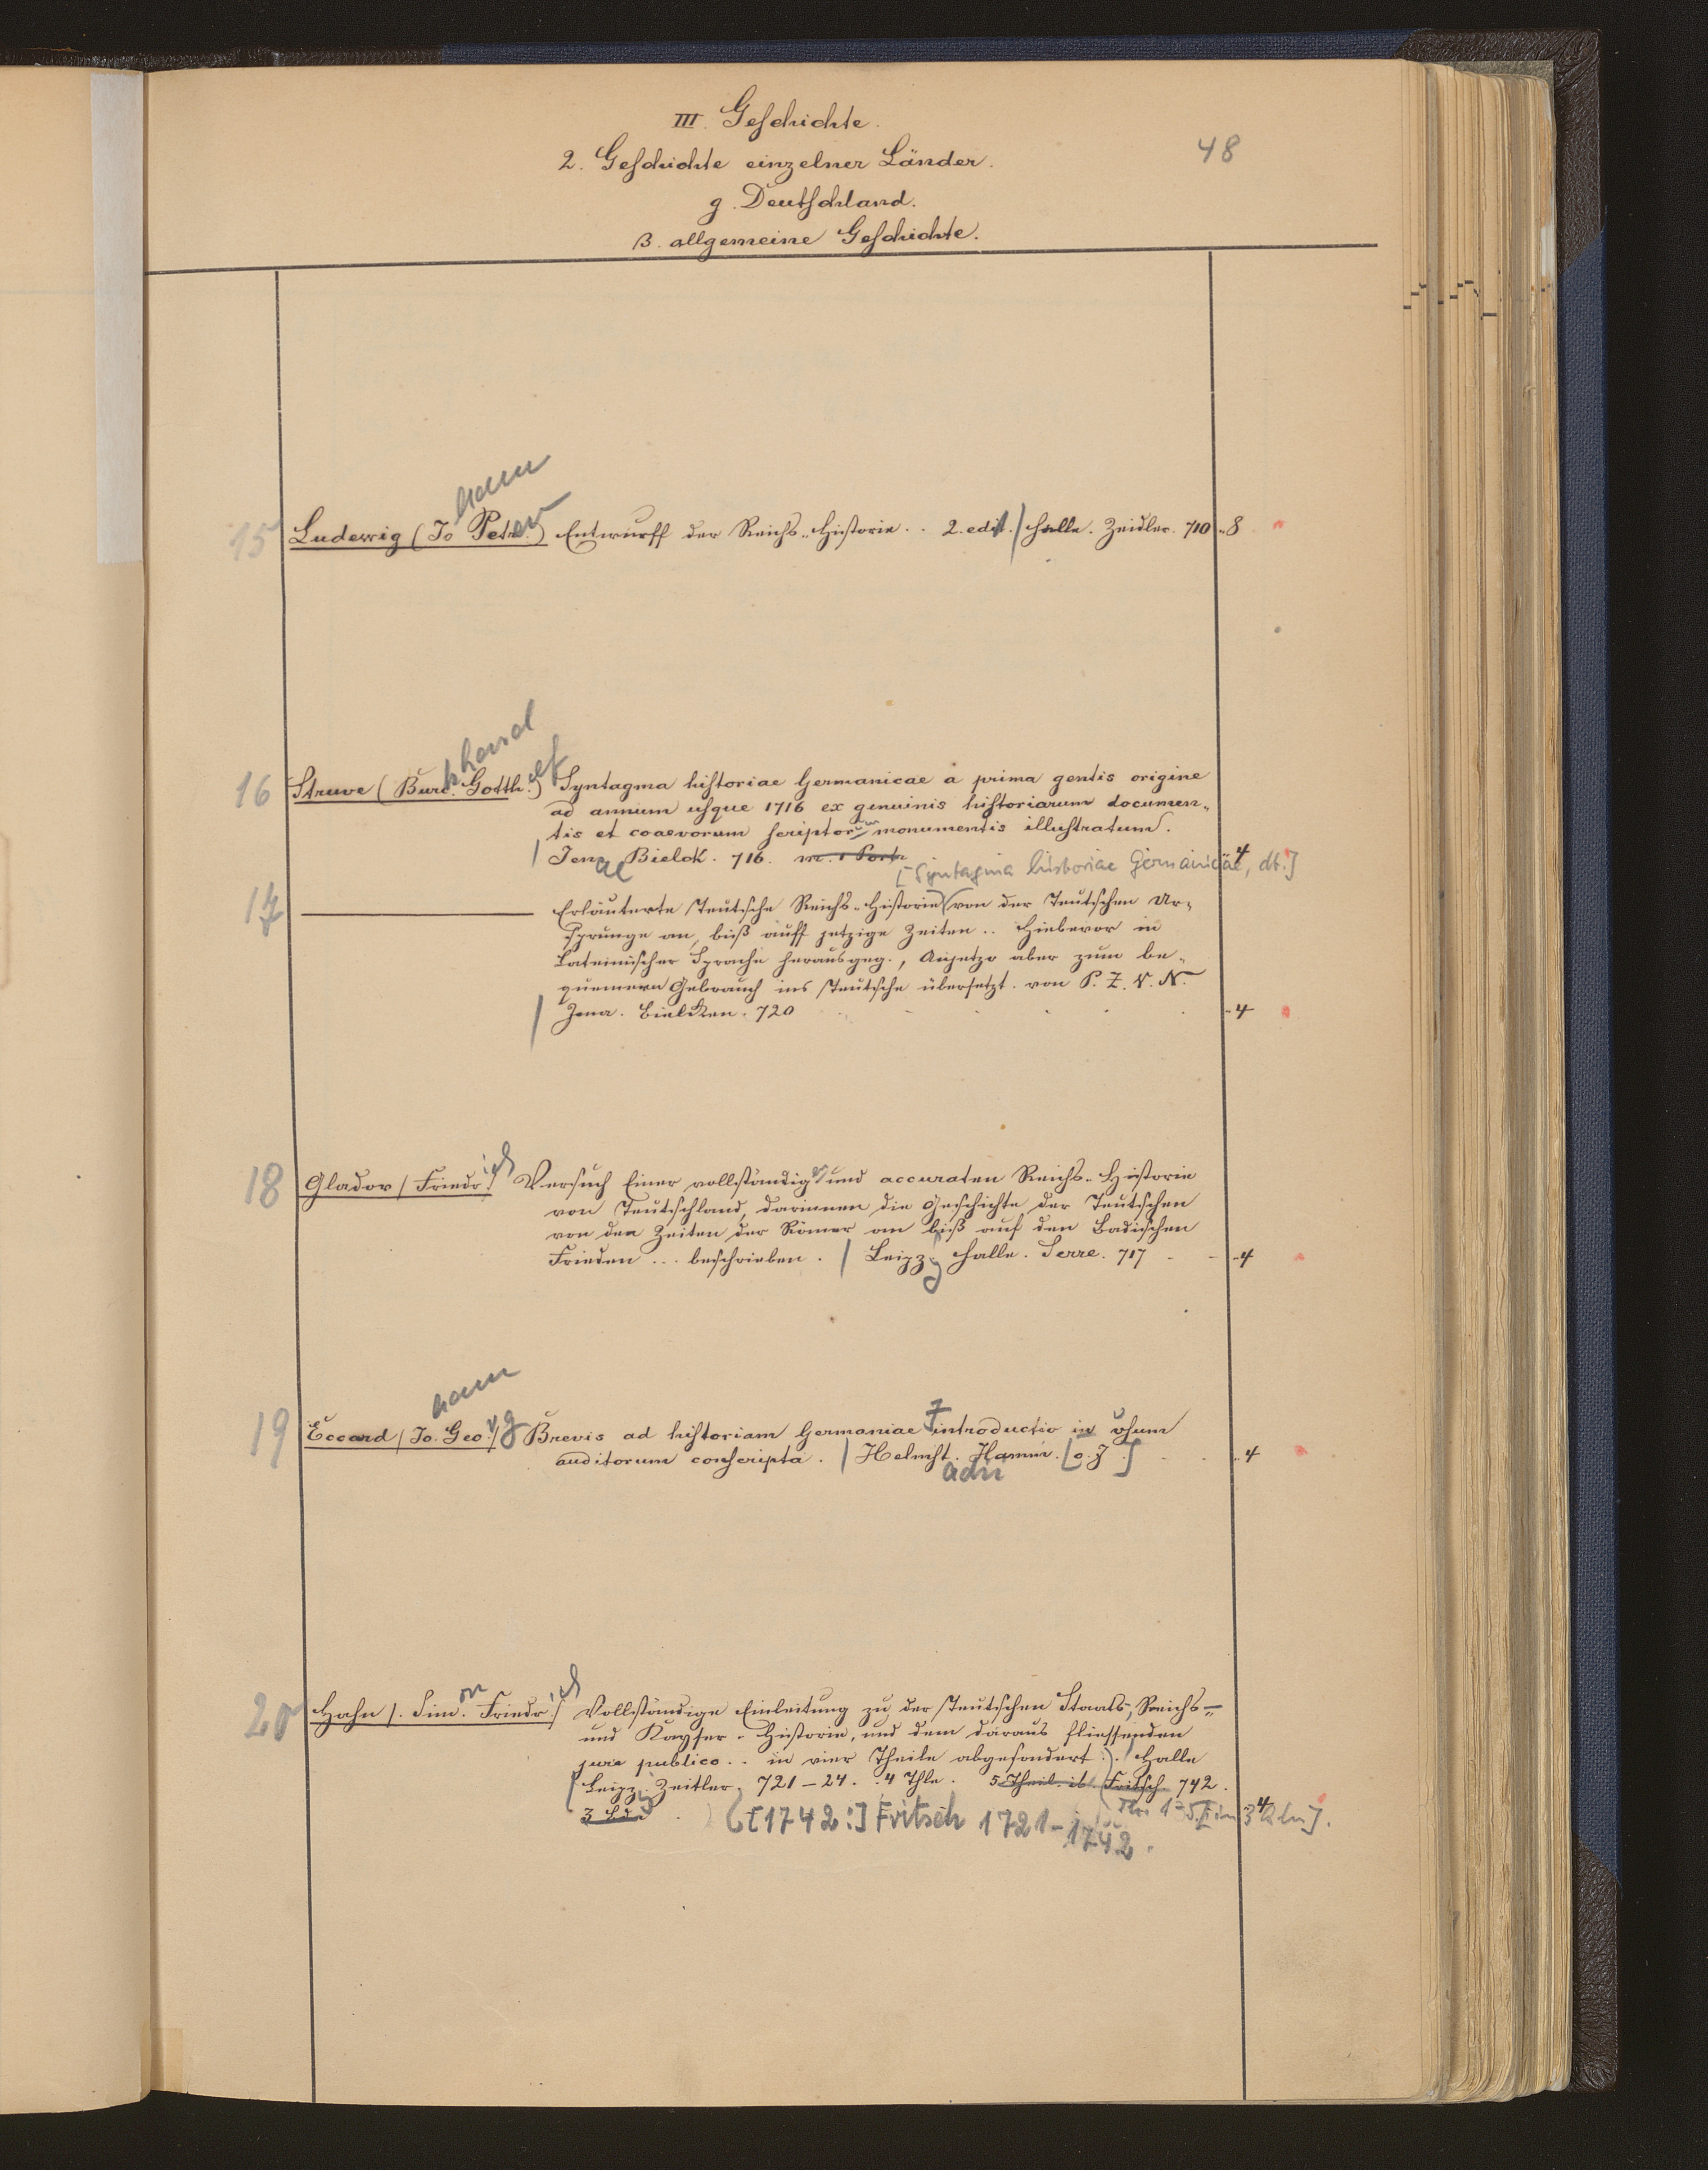 III. Geschichte.
48
2. Geschichte einzelner Länder.
g. Deutschland.
β. allgemeine Geschichte.
hann
15 Ludewig (Jo Petr.) er Entwurff der Reichs-Historie .. 2. edit. / Halle. Zeidler. 710 „8
khard
16 Struve (Burc. Gotth.) elf Syntagma historiae Germanicae a prima gentis origine
ad annum usque 1716 ex genuinis historiarum documen-
tis et coaevorum scriptorum monumentis illustratum.
/ Jenae Bielck. 716. 4
[Syntagma historiae Germanicae, dt.]
17 ——— Erläuterte Teutsche Reichs-Historie (von der Teutschen Ur-
sprunge an, biß auff jetzige Zeiten .. Hiebevor in
Lateinischer Sprache herausgeg., Anjetzo aber zum be-
quemern Gebrauch ins Teutsche übersetzt. von P. Z. V. N.
/ Jena. Bielcken. 720 „4
18 Gladov / Friedr. ich / Versuch Einer vollständigen und accuraten Reichs-Historie
von Teutschland, darinnen die Geschichte der Teutschen
von den Zeiten der Römer an biß auf den Badischen
Frieden ... beschrieben. / Leipzig Halle. Serre. 717 - - „4
hann
19 Eccard / Jo. Geo. rg / Brevis ad historiam Germaniae introductio in usum
auditorum conscripta. / Helmst. adii Hamm. [o. J.] „4
20 Hahn /. Sim. on Friedr. ich / Vollständige Einleitung zu der Teutschen Staats-, Reichs-
und Kayser-Historie, und dem daraus fliessenden
jure publico .. in vier Theile abgesondert.). / Halle
Leipzig Zeitler. 721–24. 4 Thle. 5 Theil. ib. Fritsch 742.
3 Bde 4
([1742:] Fritsch 1721–1742.